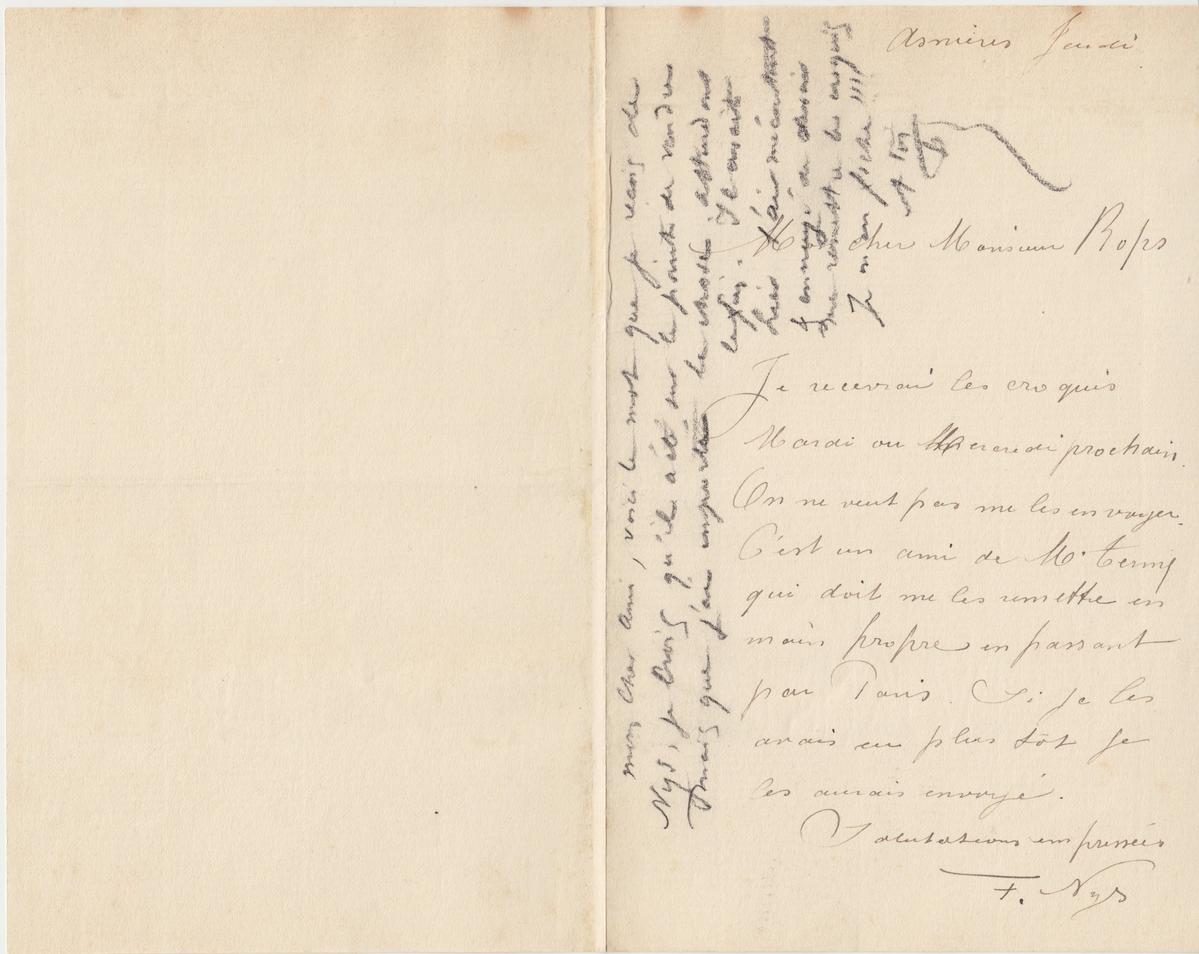 Asnières Jeudi
Mon cher Monsieur Rops
Je recevrai les croquis
Mardi ou Mercredi prochain.
On ne veut pas me les envoyer.
C'est un ami de Mr
qui doit me les remettre en
main propre en passant
par Paris. Si je les
avais eu plus tôt je
les aurais envoyé.
Salutations empressées
F. Nys
mon cher Ami, voici le mot que je reçois de
Nys, je crois qu'il a été sur le point de vendre
mais que j'ai les choses
Il avait
hier l'air mécontent
ennuyé de
me remettre les croquis
Je m'en fiche !!!!